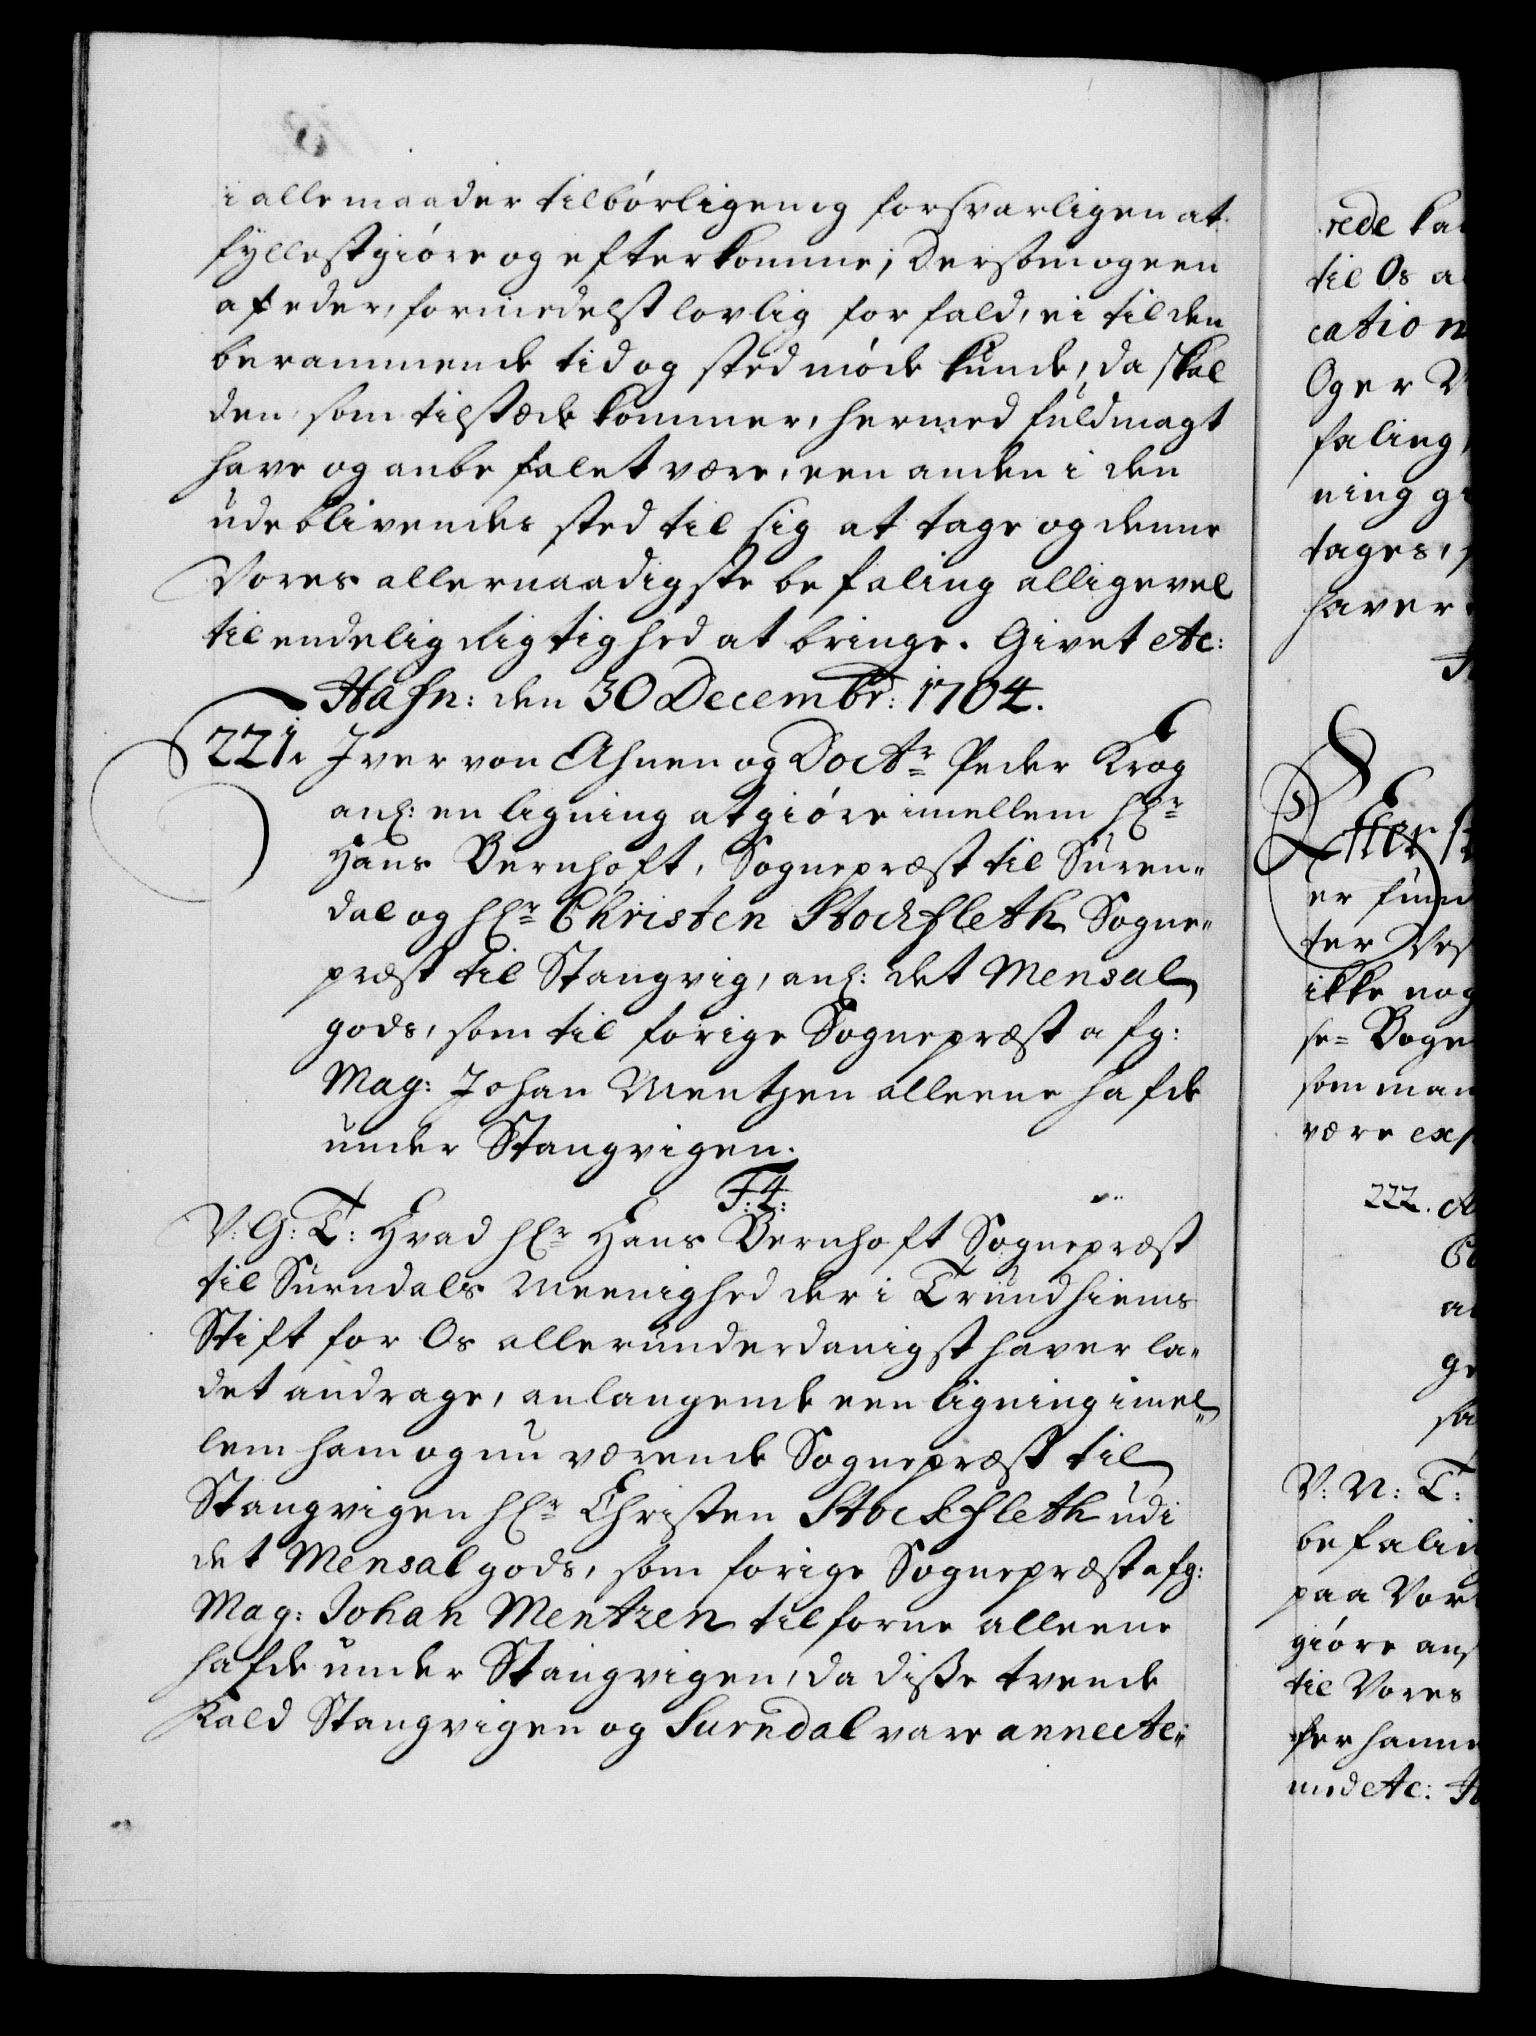 i alle maader tilbórligen og forsvarligen at
fyllestgióre og efterkomme; Dersom og een
af eder, formedelst lovlig forfald, ei til den
berammende tid og sted móde kunde, da skal
den, som tilstæde kommer, hermed fuldmagt
have og anbefalet være, een anden i den
udeblivendes sted til sig at tage og denne
Vores allernaadigste befaling alligevel
til endelig Rigtighed at bringe. Givet etc:
Hafn: den 30 Decembr: 1704.
221. Iver von Ahnen og Doctr Peder Krog
anl: en ligning at gióre imellem Hr
Hans Bernhoft, Sognepræst til Suren„
dal og Hr Christen Stockfleth Sogne„
præst til Stangvig, anl: det Mensal
gods, som til forige Sognepræst afg:
Mag: Johan Mentzen alleene hafde
under Stangvigen.
F: 4:
V: G: T: Hvad Hr Hans Bernhoft Sognepræst
til Surndals Meenighed der i Trundhiems
Stift for Os allerunderdanigst haver la„
det andrage, anlangende een ligning imel„
lem ham og nu værende Sognepræst til
Stangvigen Hr Christen Stockfleth udi
det Mensal gods, som forige Sognepræst afg:
Mag: Johan Mentzen tilforne alleene
hafde under Stangvigen, da disse tvende
Kald Stangvigen og Surndal vare annecte„
rede
til Os
cation
Og er
faling,
ning
tages,
haver
Efter
er
ter
ikke
se= Boge
som man
være
222.
V: N: T:
paa
gióre
til Vores
etc: